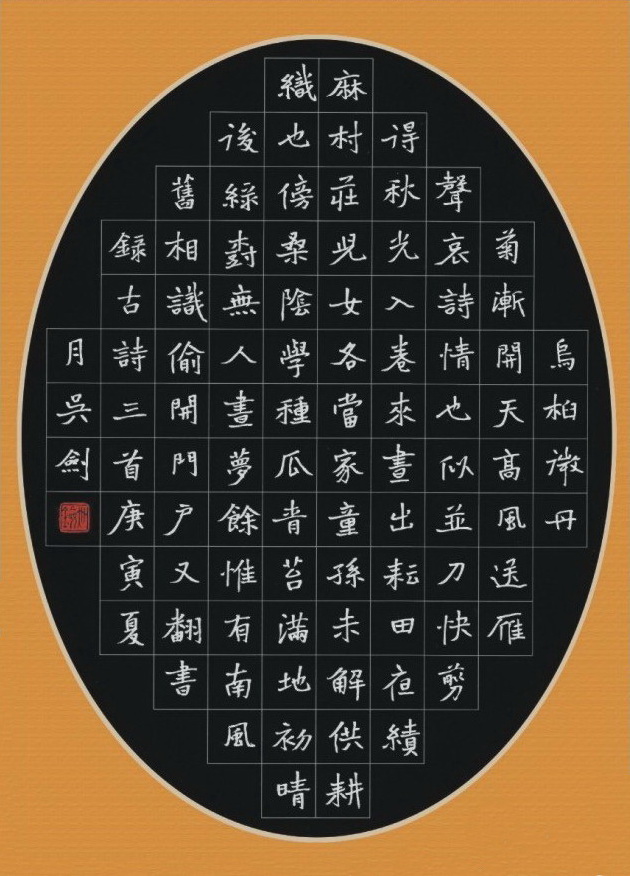 烏桕微丹
菊漸開天高風送雁
聲哀詩情也似並刀快剪
得秋光入卷來晝出耘田夜績
麻村莊兒女各當家童孫未解供耕
織也傍桑陰學種瓜青苔滿地初晴
後綠樹無人晝夢餘惟有南風
舊相識偷開門戶又翻書
録古詩三首庚寅夏
月吳劍